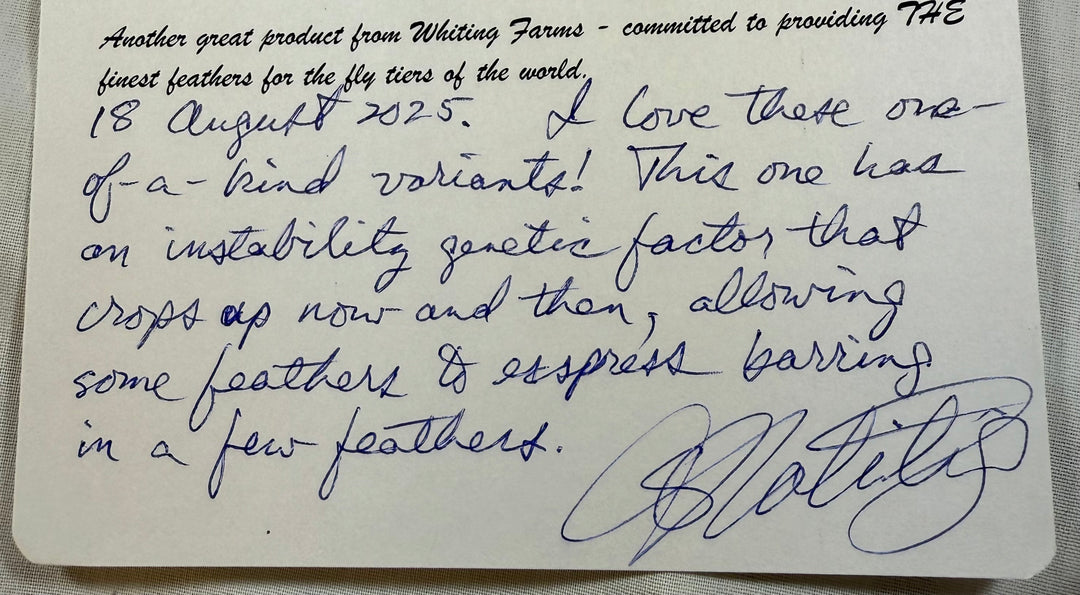 Another great product from Whiting Farms - committed to providing THE
finest feathers for the fly tiers of the world.
18 August 2025. I love these one-
of-a-kind variants! This one has
an instability genetic factor that
crops up now and then, allowing
some feathers to esspress barring
in a few feathers.